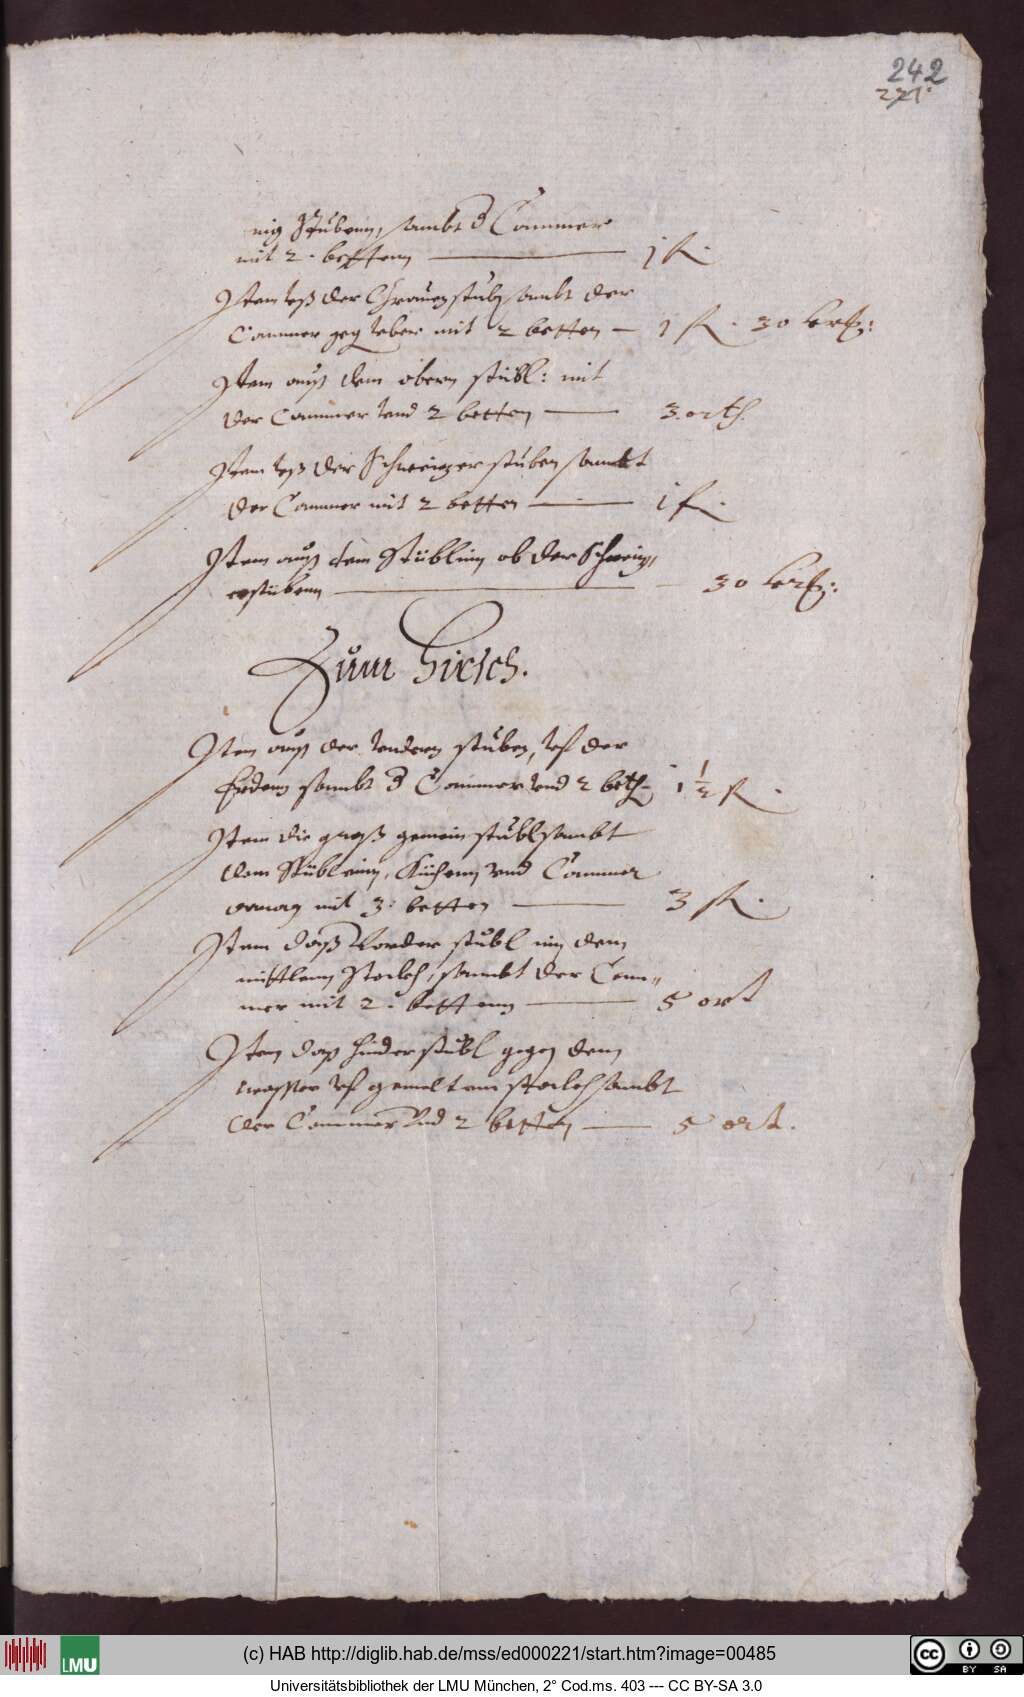 242
221
nig Stubenn, sambt d Cammer
mit 2. bettenn — 1 fl.
Item vß der Grauen stub sambt der
Cammer geg vber mit 2 betten — 1 fl. 30 krz:
Item auß dem obern stübl: mit
der Cammer vnd 2 betten — 3. orth.
Item vß der Schweitzer stuben sambt
der Cammer mit 2 betten — 1 fl.
Item auß dem Stüblin ob der Schweitz,,
erstubenn — 30 krz:
Zum Hirsch.
Item auß der vndern stuben, vf der
Erden sambt d Cammer vnd 2 beth — 1 1/2 fl.
Item die groß gemein stubl sambt
dem Stüblein, Küchenn vnd Cammer
mit 3. betten — 3 fl.
Item daß Vorder stübl im dem
mittlenn Stockh, sambt der Cam,,
mer mit 2. bettenn — 5 ort
Item daß hinder stübl gegen dem
wasser vf gemeltem stockh sambt
der Cammer Vnd 2 betten — 5 ort.
(c) HAB http://diglib.hab.de/mss/ed000221/start.htm?image=00485
LMU
cc BY SA
Universitätsbibliothek der LMU München, 2° Cod.ms. 403 --- CC BY-SA 3.0